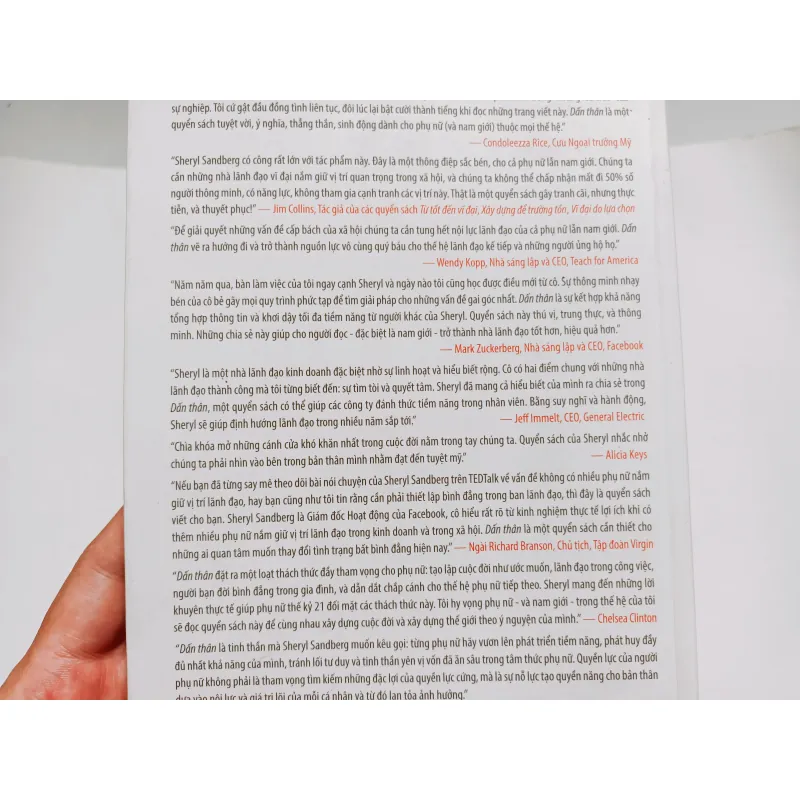 sự nghiệp. Tôi cứ gật đầu đồng tình liên tục, đôi lúc lại bật cười thành tiếng khi đọc những trang viết này. Dấn thân là một
quyển sách tuyệt vời, ý nghĩa, thẳng thắn, sinh động dành cho phụ nữ (và nam giới) thuộc mọi thế hệ.”
— Condoleezza Rice, Cựu Ngoại trưởng Mỹ
“Sheryl Sandberg có công rất lớn với tác phẩm này. Đây là một thông điệp sắc bén, cho cả phụ nữ lẫn nam giới. Chúng ta
cần những nhà lãnh đạo vĩ đại nắm giữ vị trí quan trọng trong xã hội, và chúng ta không thể chấp nhận mất đi 50% số
người thông minh, có năng lực, không tham gia cạnh tranh các vị trí này. Thật là một quyển sách gây tranh cãi, nhưng thực
tiễn, và thuyết phục!” — Jim Collins, Tác giả của các quyển sách Từ tốt đến vĩ đại, Xây dựng để trường tồn, Vĩ đại do lựa chọn
“Để giải quyết những vấn đề cấp bách của xã hội chúng ta cần tung hết nội lực lãnh đạo của cả phụ nữ lẫn nam giới. Dấn
thân vẽ ra hướng đi và trở thành nguồn lực vô cùng quý báu cho thế hệ lãnh đạo kế tiếp và những người ủng hộ họ.”
— Wendy Kopp, Nhà sáng lập và CEO, Teach for America
“Năm năm qua, bàn làm việc của tôi ngay cạnh Sheryl và ngày nào tôi cũng học được điều mới từ cô. Sự thông minh nhạy
bén của cô bẻ gãy mọi quy trình phức tạp để tìm giải pháp cho những vấn đề gai góc nhất. Dấn thân là sự kết hợp khả năng
tổng hợp thông tin và khơi dậy tối đa tiềm năng từ người khác của Sheryl. Quyển sách này thú vị, trung thực, và thông
minh. Những chia sẻ này giúp cho người đọc - đặc biệt là nam giới - trở thành nhà lãnh đạo tốt hơn, hiệu quả hơn.”
— Mark Zuckerberg, Nhà sáng lập và CEO, Facebook
“Sheryl là một nhà lãnh đạo kinh doanh đặc biệt nhờ sự linh hoạt và hiểu biết rộng. Cô có hai điểm chung với những nhà
lãnh đạo thành công mà tôi từng biết đến: sự tìm tòi và quyết tâm. Sheryl đã mang cả hiểu biết của mình ra chia sẻ trong
Dấn thân, một quyển sách có thể giúp các công ty đánh thức tiềm năng trong nhân viên. Bằng suy nghĩ và hành động,
Sheryl sẽ giúp định hướng lãnh đạo trong nhiều năm sắp tới.” — Jeff Immelt, CEO, General Electric
“Chìa khóa mở những cánh cửa khó khăn nhất trong cuộc đời nằm trong tay chúng ta. Quyển sách của Sheryl nhắc nhở
chúng ta phải nhìn vào bên trong bản thân mình nhằm đạt đến tuyệt mỹ.” — Alicia Keys
“Nếu bạn đã từng say mê theo dõi bài nói chuyện của Sheryl Sandberg trên TEDTalk về vấn đề không có nhiều phụ nữ nắm
giữ vị trí lãnh đạo, hay bạn cũng như tôi tin rằng cần phải thiết lập bình đẳng trong ban lãnh đạo, thì đây là quyển sách
viết cho bạn. Sheryl Sandberg là Giám đốc Hoạt động của Facebook, cô hiểu rất rõ từ kinh nghiệm thực tế lợi ích khi có
thêm nhiều phụ nữ nắm giữ vị trí lãnh đạo trong kinh doanh và trong xã hội. Dấn thân là một quyển sách cần thiết cho
những ai quan tâm muốn thay đổi tình trạng bất bình đẳng hiện nay.” — Ngài Richard Branson, Chủ tịch, Tập đoàn Virgin
“Dấn thân đặt ra một loạt thách thức đầy tham vọng cho phụ nữ: tạo lập cuộc đời như ước muốn, lãnh đạo trong công việc,
người bạn đời bình đẳng trong gia đình, và dẫn dắt chắp cánh cho thế hệ phụ nữ tiếp theo. Sheryl mang đến những lời
khuyên thực tế giúp phụ nữ thế kỷ 21 đối mặt các thách thức này. Tôi hy vọng phụ nữ - và nam giới - trong thế hệ của tôi
sẽ đọc quyển sách này để cùng nhau xây dựng cuộc đời và xây dựng thế giới theo ý nguyện của mình.” — Chelsea Clinton
“Dấn thân là tinh thần mà Sheryl Sandberg muốn kêu gọi: từng phụ nữ hãy vươn lên phát triển tiềm năng, phát huy đầy
đủ nhất khả năng của mình, tránh lối tư duy và tinh thần yên vị vốn đã ăn sâu trong tâm thức phụ nữ. Quyền lực của người
phụ nữ không phải là tham vọng tìm kiếm những đặc lợi của quyền lực cứng, mà là sự nỗ lực tạo quyền năng cho bản thân
dựa vào nội lực và giá trị lõi của mỗi cá nhân và từ đó lan tỏa ảnh hưởng.”